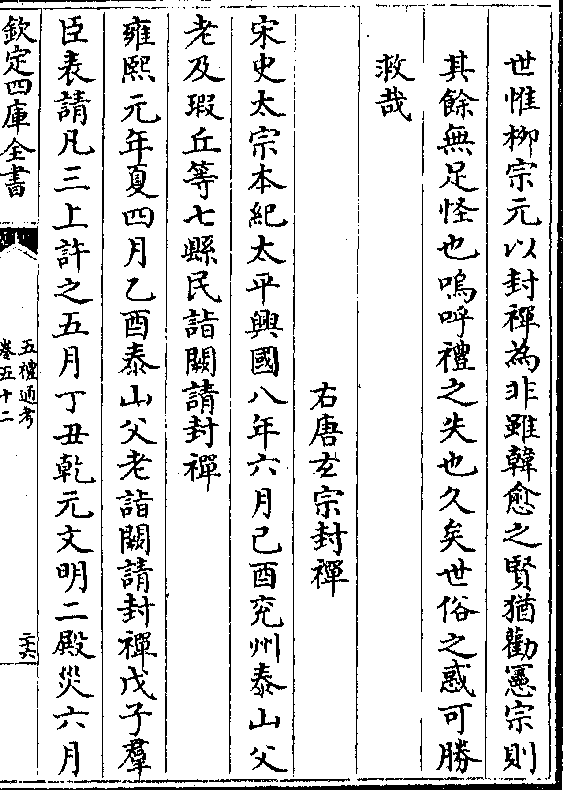 世惟栁宗元以封禪為非雖韓愈之賢猶勸憲宗則
其餘無足怪也嗚呼禮之失也久矣世俗之惑可勝
救哉
右唐𤣥宗封禪
宋史太宗本紀太平興國八年六月己酉兖州泰山父
老及瑕丘等七縣民詣闕請封禪
雍熙元年夏四月乙酉泰山父老詣闕請封禪戊子羣
臣表請凡三上許之五月丁丑乾元文明二殿災六月
欽定四庫全書
五禮通考
卷五十二
二六